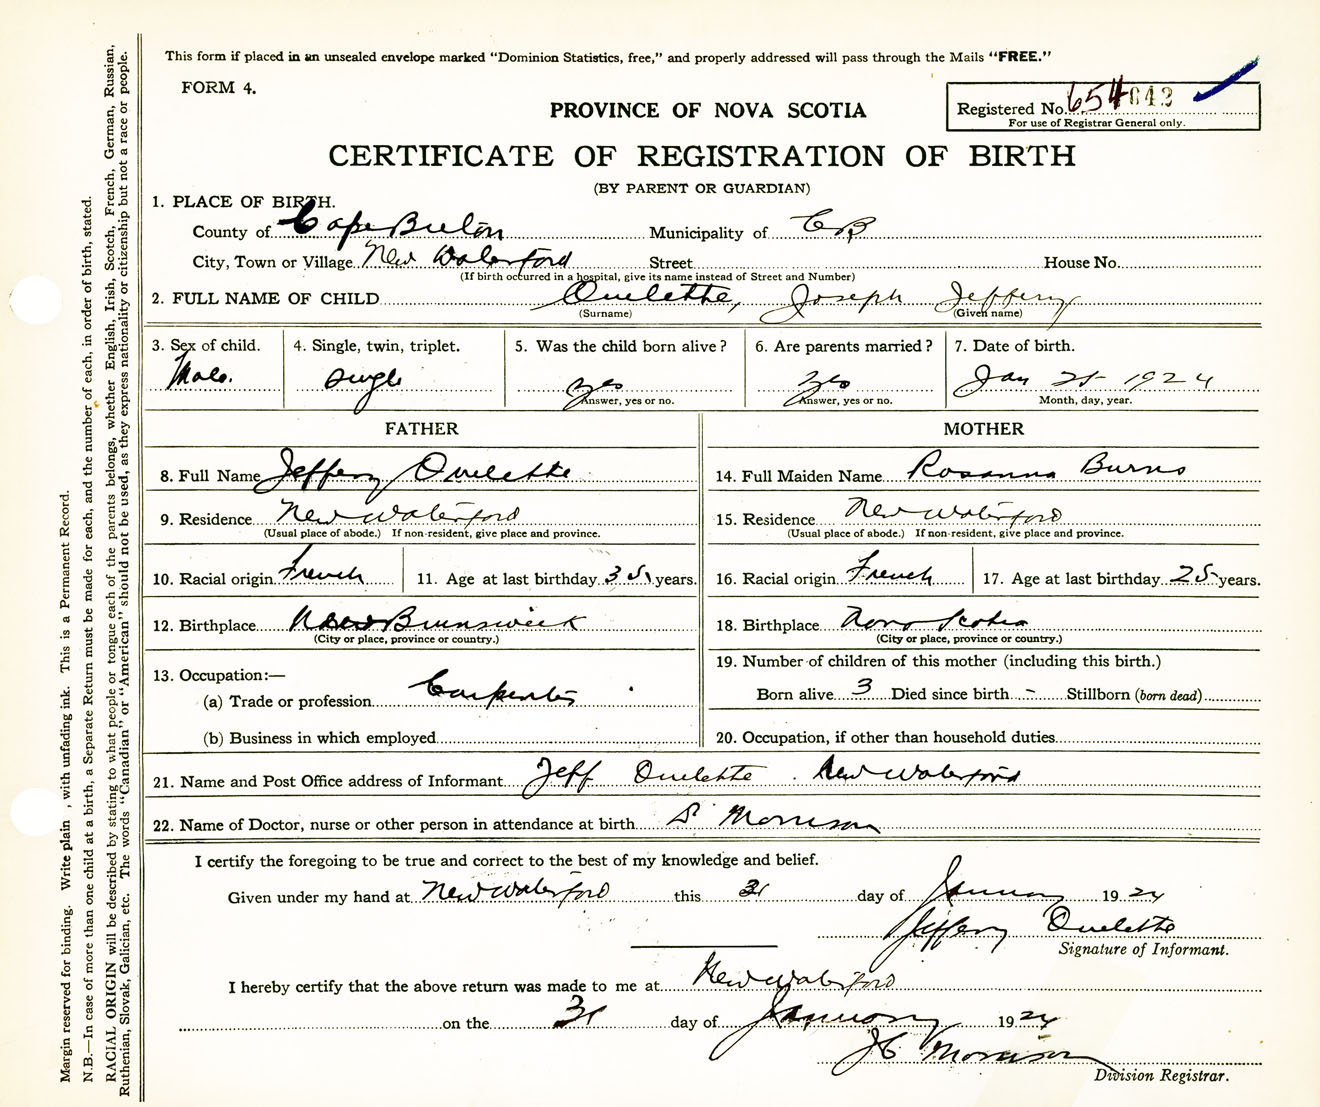 This form if placed in an unsealed envelope marked "Dominion Statistics, free," and properly addressed will pass through the Mails "FREE."
FORM 4.
Registered No. 654 642
For use of Registrar General only.
PROVINCE OF NOVA SCOTIA
CERTIFICATE OF REGISTRATION OF BIRTH
(BY PARENT OR GUARDIAN)
1. PLACE OF BIRTH.
County of Cape Breton Municipality of C B
City, Town or Village New Waterford Street House No.
(If birth occurred in a hospital, give its name instead of Street and Number)
2. FULL NAME OF CHILD Ouelette, Joseph Jeffery
(Surname) (Given name)
3. Sex of child. 4. Single, twin, triplet. 5. Was the child born alive? 6. Are parents married? 7. Date of birth.
Male. Single yes yes Jan 25 1924
Answer, yes or no. Answer, yes or no. Month, day, year.
FATHER
8. Full Name Jeffery Ouelette
9. Residence New Waterford
(Usual place of abode.) If non-resident, give place and province.
10. Racial origin French 11. Age at last birthday 35 years.
12. Birthplace New Brunswick
(City or place, province or country.)
13. Occupation:—
(a) Trade or profession Carpenter
(b) Business in which employed
MOTHER
14. Full Maiden Name Rosanna Burns
15. Residence New Waterford
(Usual place of abode.) If non-resident, give place and province.
16. Racial origin French 17. Age at last birthday 25 years.
18. Birthplace Nova Scotia
(City or place, province or country.)
19. Number of children of this mother (including this birth.)
Born alive 3 Died since birth - Stillborn (born dead)
20. Occupation, if other than household duties
21. Name and Post Office address of Informant Jeff Ouelette . New Waterford
22. Name of Doctor, nurse or other person in attendance at birth Dr Morrison
I certify the foregoing to be true and correct to the best of my knowledge and belief.
Given under my hand at New Waterford this 31 day of January 1924
Jeffery Ouelette
Signature of Informant.
I hereby certify that the above return was made to me at New Waterford
on the 31 day of January 1924
J C Morrison
Division Registrar.
Margin reserved for binding. Write plain , with unfading ink. This is a Permanent Record.
N.B.—In case of more than one child at a birth, a Separate Return must be made for each, and the number of each, in order of birth, stated.
RACIAL ORIGIN will be described by stating to what people or tongue each of the parents belongs, whether English, Irish, Scotch, French, German, Russian,
Ruthenian, Slovak, Galician, etc. The words "Canadian" or "American" should not be used, as they express nationality or citizenship but not a race or people.